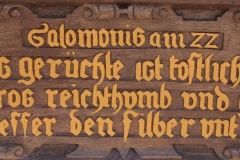 Salomonis am 22
s gerüchte ist kostlich
ros reichthumb und
esser den silber unt